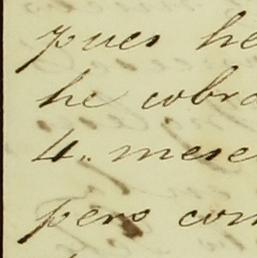 pues he
he cobra
4. mese
pero con